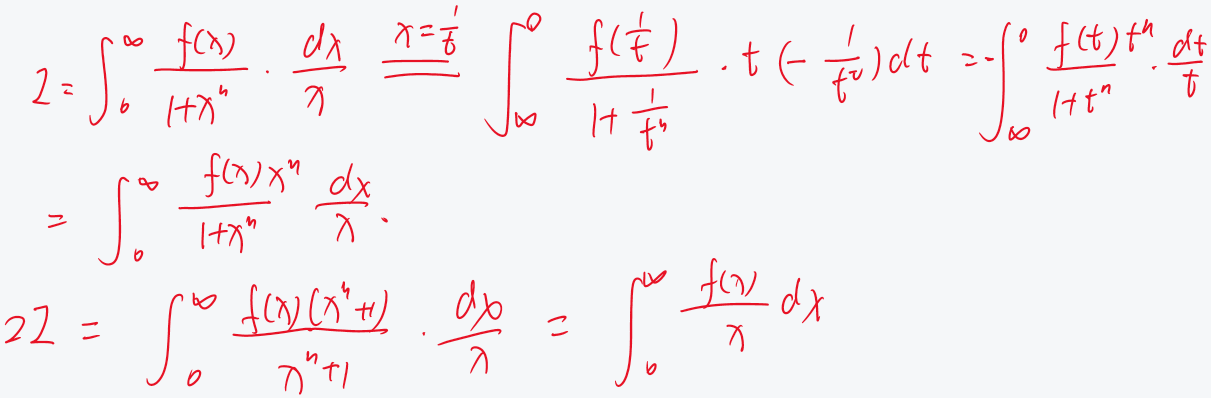 I = ∫_0^∞ f(x)/(1+x^n) · dx/x \xlongequal{x=1/t} ∫_∞^0 f(1/t)/(1+1/t^n) · t(-1/t^2)dt = -∫_∞^0 f(t)t^n/(1+t^n) · dt/t
= ∫_0^∞ f(x)x^n/(1+x^n) dx/x.
2I = ∫_0^∞ f(x)(x^n+1)/(x^n+1) · dx/x = ∫_0^∞ f(x)/x dx